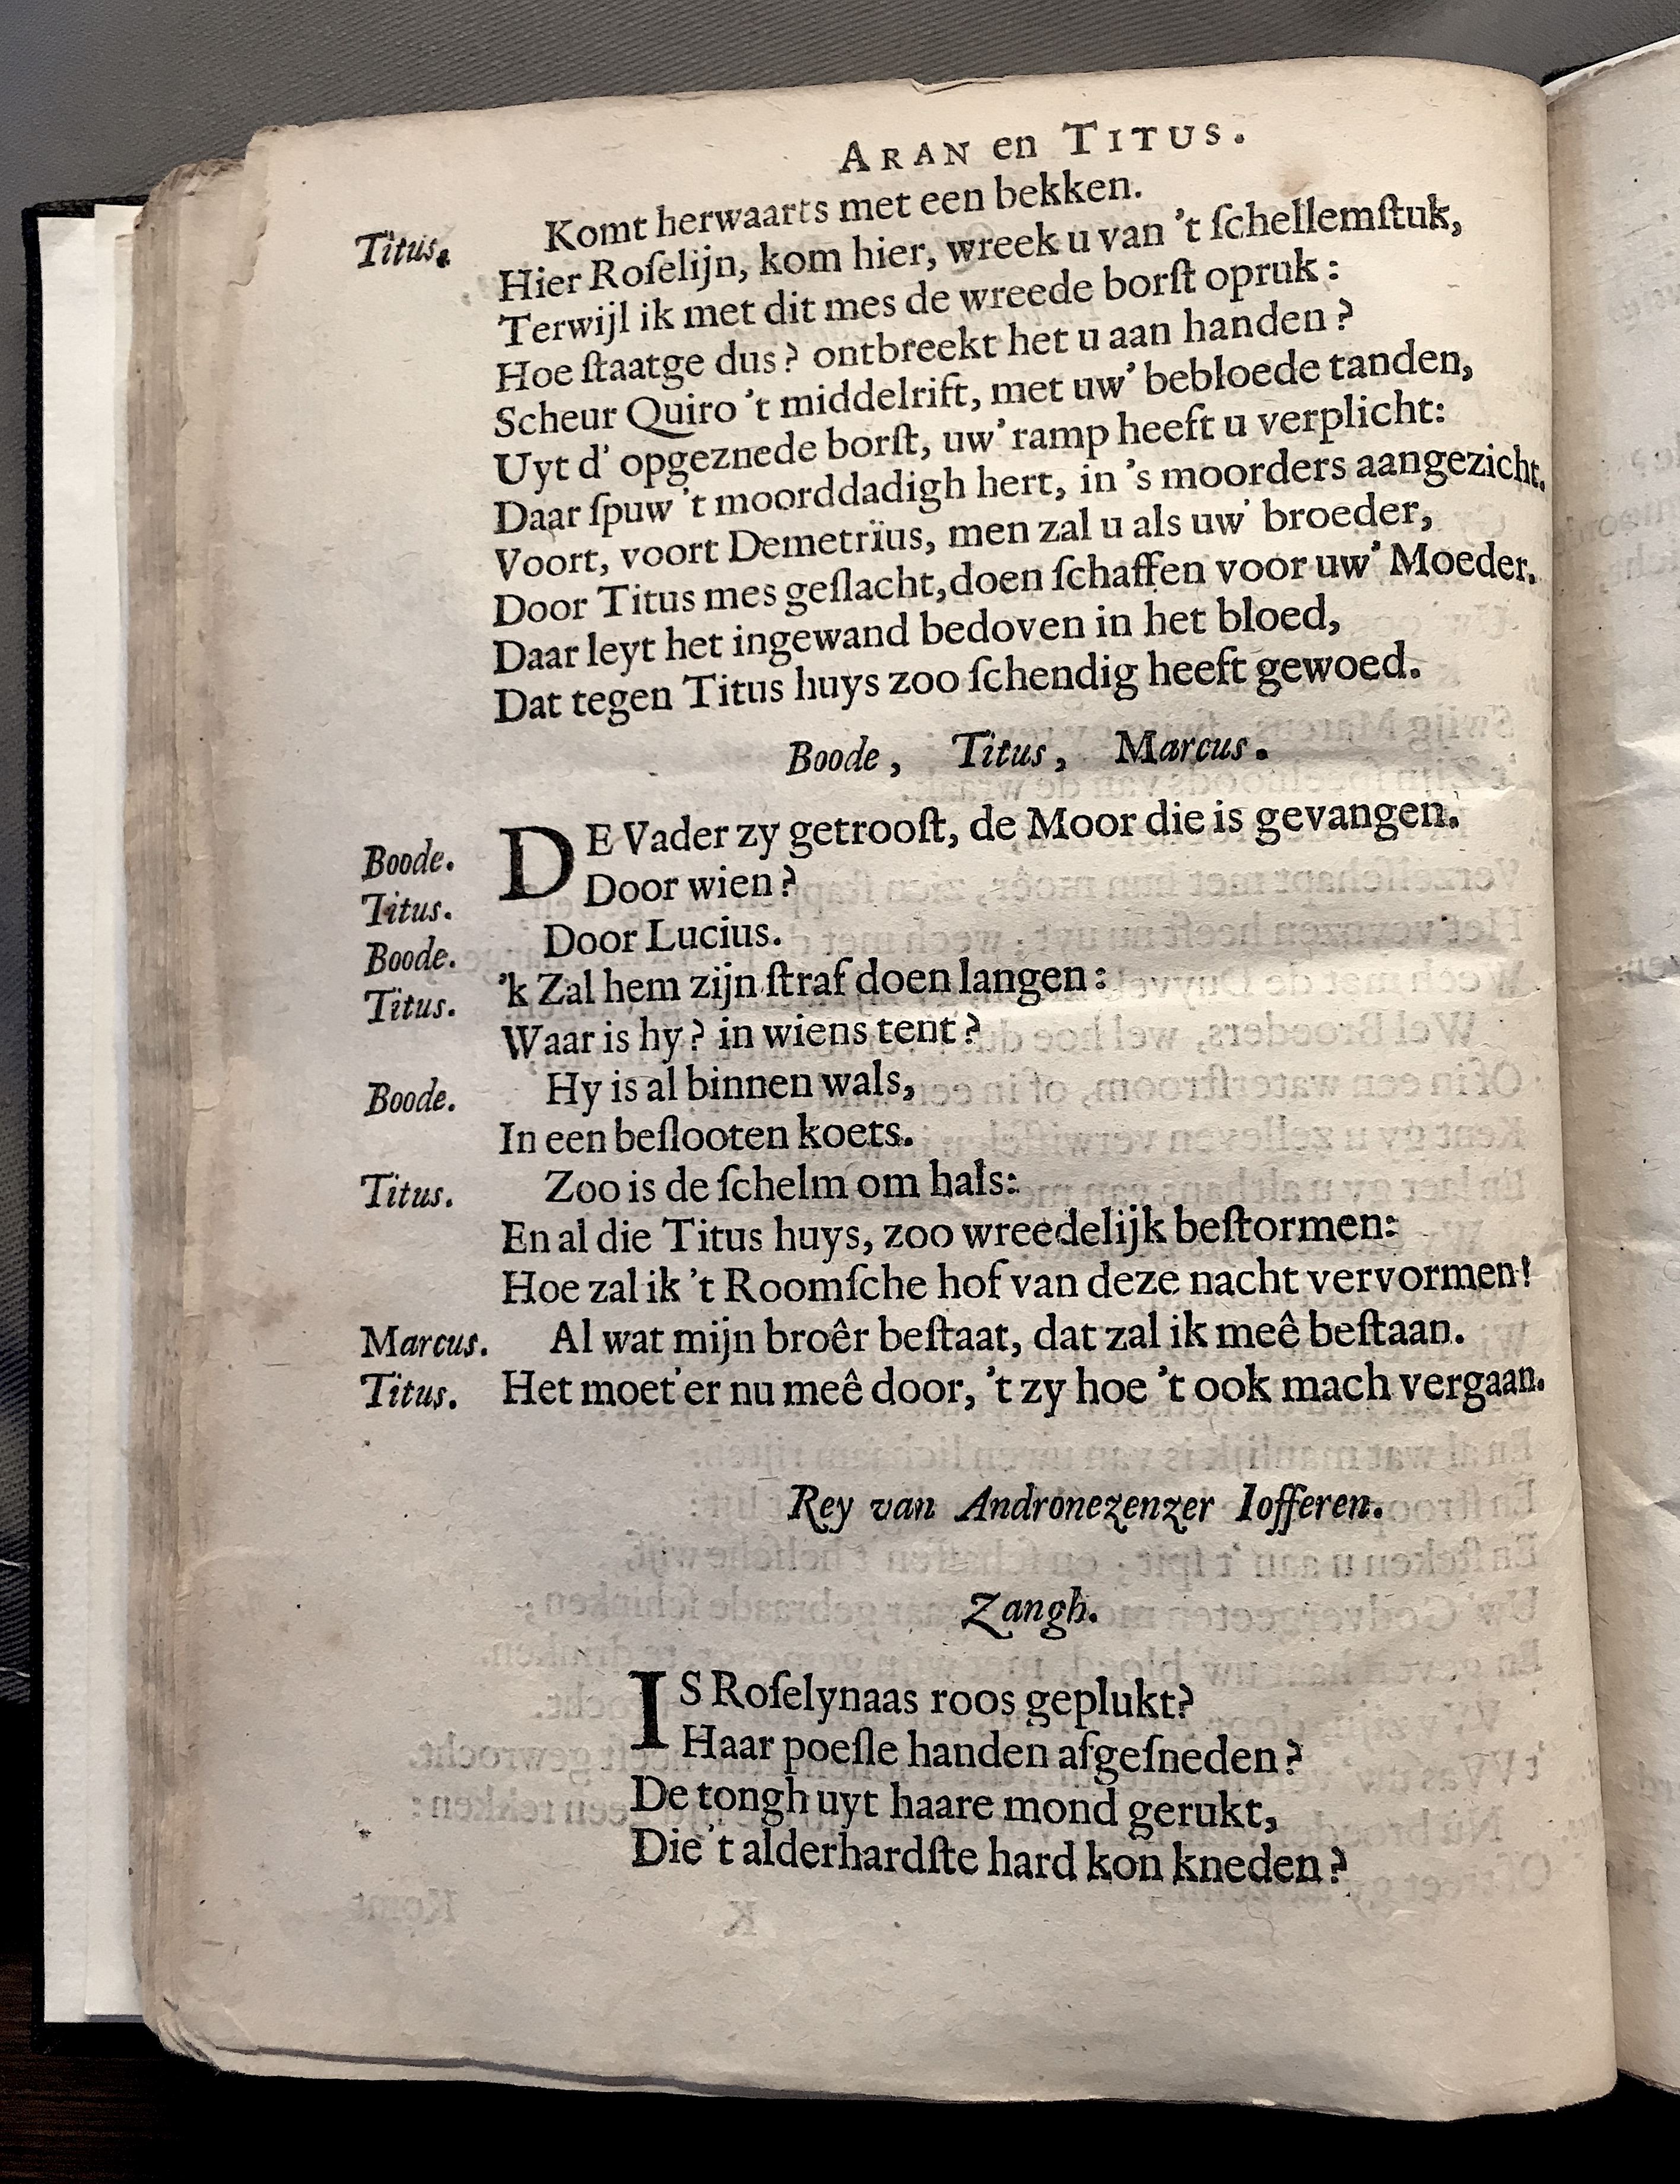 ARAN en TITUS.
Komt herwaarts met een bekken.
Titus. Hier Roſelijn, kom hier, wreek u van 't ſchellemſtuk,
Terwijl ik met dit mes de wreede borſt opruk:
Hoe ſtaatge dus? ontbreekt het u aan handen?
Scheur Quiro 't middelrift, met uw' bebloede tanden,
Uyt d' opgeznede borſt, uw' ramp heeft u verplicht:
Daar ſpuw 't moorddadigh hert, in 's moorders aangezicht.
Voort, voort Demetrïus, men zal u als uw' broeder,
Door Titus mes geſlacht, doen ſchaffen voor uw' Moeder.
Daar leyt het ingewand bedoven in het bloed,
Dat tegen Titus huys zoo ſchendig heeft gewoed.
Boode, Titus, Marcus.
Boode. DE Vader zy getrooſt, de Moor die is gevangen.
Titus. Door wien?
Boode. Door Lucius.
Titus. 'k Zal hem zijn ſtraf doen langen:
Waar is hy? in wiens tent?
Boode. Hy is al binnen wals,
In een beſlooten koets.
Titus. Zoo is de ſchelm om hals:
En al die Titus huys, zoo wreedelijk beſtormen:
Hoe zal ik 't Roomſche hof van deze nacht vervormen!
Marcus. Al wat mijn broêr beſtaat, dat zal ik meê beſtaan.
Titus. Het moet'er nu meê door, 't zy hoe 't ook mach vergaan.
Rey van Andronezenzer Iofferen.
Zangh.
IS Roſelynaas roos geplukt?
Haar poeſle handen afgeſneden?
De tongh uyt haare mond gerukt,
Die 't alderhardſte hard kon kneden?